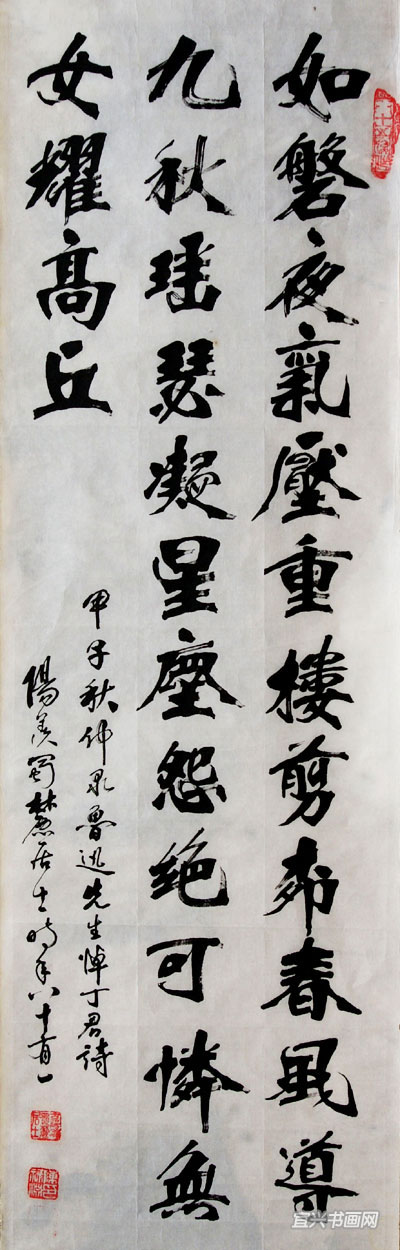 如磐夜氣壓重樓剪柳春風導
九秋瑶瑟凝星塵怨绝可憐無
女耀高丘
甲子秋仲录魯迅先生悼丁君詩
陽羨蜀麓居士時年八十有一
宜兴书画网